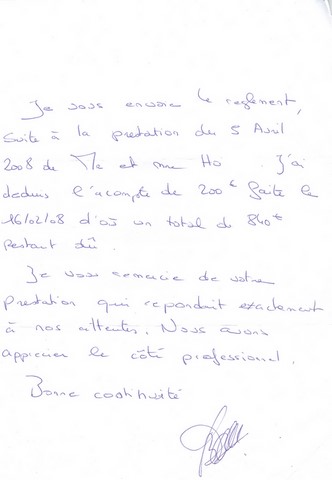 Je vous envoie le reglement,
Suite à la prestation du 5 Avril
2008 de Me et mme Ho . J'ai
deduis l'acompte de 200€ faite le
16/02/08 d'où un total de 840€
restant dû.
Je vous remercie de votre
prestation qui repondait exactement
à nos attentes. Nous avons
apprecier le côté professionnel.
Bonne continuité